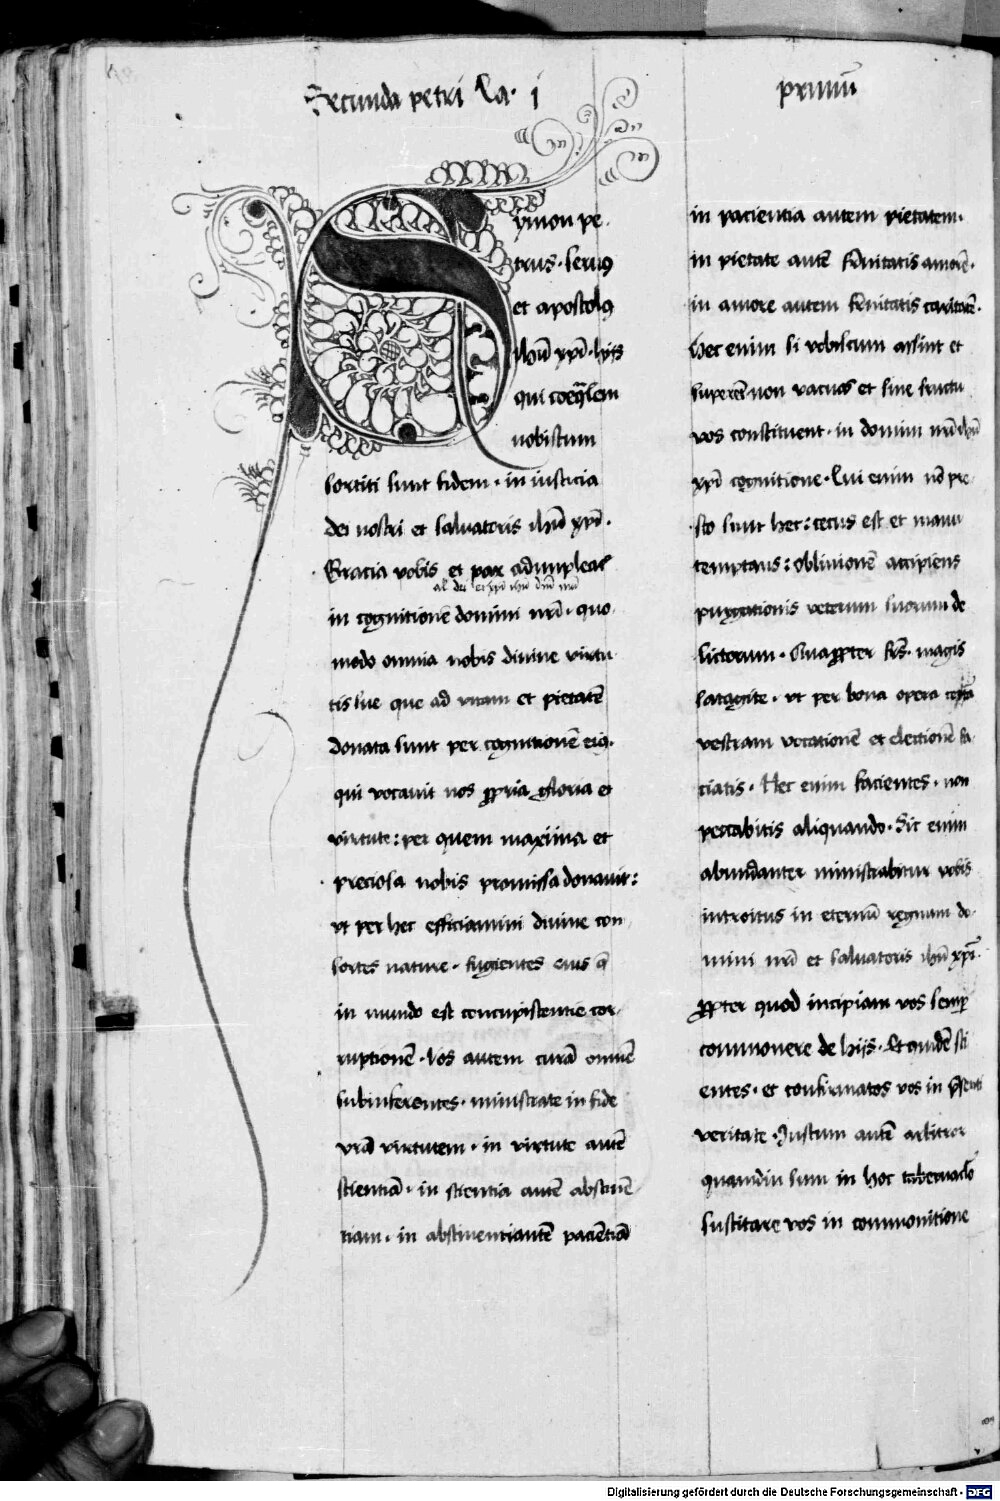 Secunda petri Ca. i
primū
Symon pe
trus. seruꝰ
et apostolꝰ
ihū xpī. hijs
qui coeq̄lem
nobiscum
sortiti sunt fidem. in iusticia
dei nostri et saluatoris ihū xpī.
Gracia vobis et pax adimpleat̄
al dei et xpī ihū dn̄i nrī
in cognitionē domini nrī. quo
modo omnia nobis diuine virtu
tis sue que ad vitam et pietatē
donata sunt per cognitionē eiꝰ.
qui vocauit nos ꝓpria gloria et
virtute: per quem maxima et
preciosa nobis promissa donauit:
vt per hec efficiamini diuine con
sortes nature. fugientes eius q̄
in mundo est concupiscentie cor
ruptionē. Vos autem curā omnē
subinferentes. ministrate in fide
vrā virtutem. in virtute autē
scientiā. in scientia autē abstinē
tiam. in abstinentia autē paciētiā
in paciencia autem pietatem.
in pietate autē fr̄nitatis amorē.
in amore autem fr̄nitatis caritatē.
Hec enim si vobiscum assint et
superēt non vacuos et sine fructu
vos constituent. in domini nrī ihū
xpī cognitione. Cui enim nō pre
sto sunt hec: cecus est et manu
temptans: obliuionē accipiens
purgationis veterum suorum de
lictorum. Quaꝓpter frs̄. magis
satagite. vt per bona opera certā
vestram vocationē et electionē fa
ciatis. Hec enim facientes. non
peccabitis aliquando. Sic enim
abundanter ministrabitur vobis
introitus in eternū regnum do
mini nrī et saluatoris ihū xpī.
ꝓpter quod incipiam vos semp̄
commonere de hijs. Et quidē sci
entes. et confirmatos vos in p̄senti
veritate. Iustum autē arbitror
quamdiu sum in hoc tabernaclo
suscitare vos in commonitione
Digitalisierung gefördert durch die Deutsche Forschungsgemeinschaft - DFG